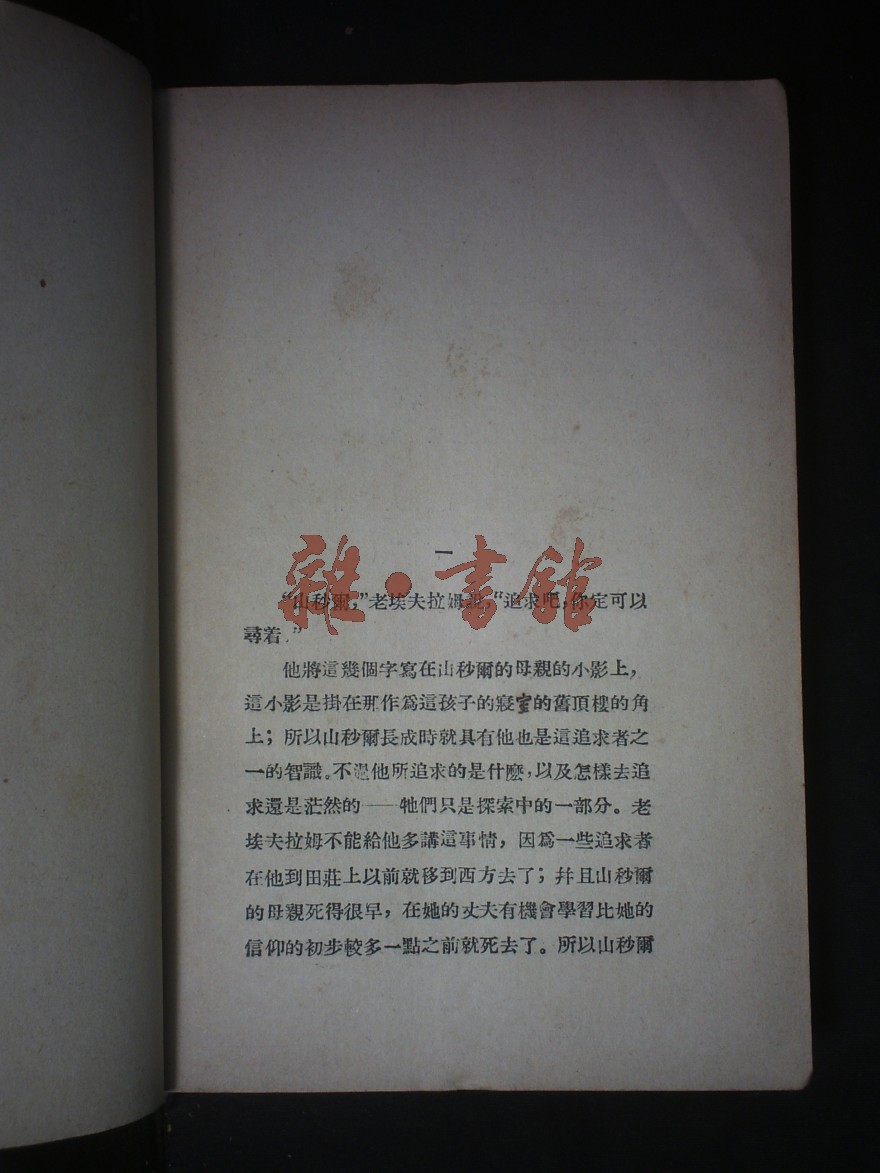 一
雜·書館
“山秒爾，”老埃夫拉姆說，“追求吧，你定可以
尋着。”
他將這幾個字寫在山秒爾的母親的小影上，
這小影是掛在那作爲這孩子的寢室的舊頂樓的角
上；所以山秒爾長成時就具有他也是這追求者之
一的智識。不過他所追求的是什麼，以及怎樣去追
求還是茫然的——牠們只是探索中的一部分。老
埃夫拉姆不能給他多講這事情，因爲一些追求者
在他到田莊上以前就移到西方去了；幷且山秒爾
的母親死得很早，在她的丈夫有機會學習比她的
信仰的初步較多一點之前就死去了。所以山秒爾